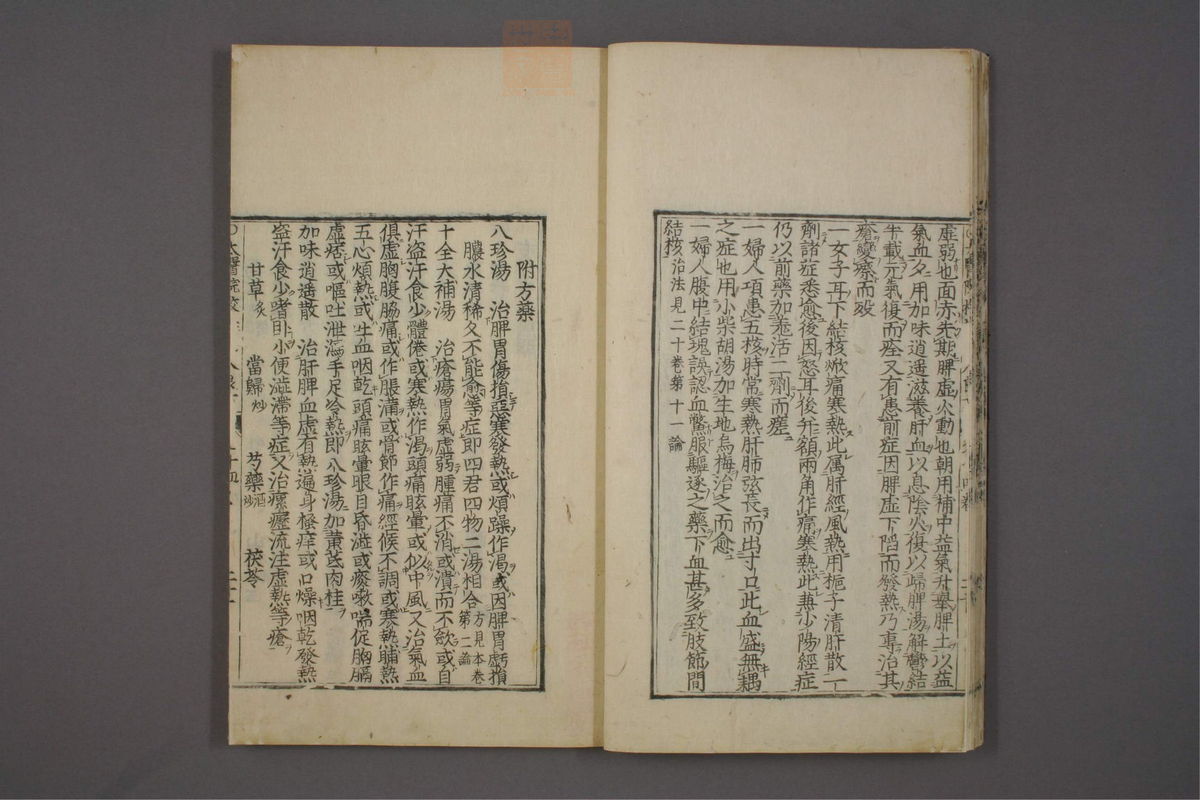 虛弱也面赤先期脾虛火動也朝用補中益氣升舉脾土以益
氣血夕用加味逍遥滋養肝血以息陰火復以歸脾湯解鬱結
半載元氣復而痊又有患前症因脾虛下陷而發熱乃專治其
瘡變瘵而歿
一女子耳下結核焮痛寒熱此属肝經風熱用梔子清肝散一
劑諸症悉愈後因怒耳後并額兩角作痛寒熱此兼少陽經症
仍以前藥加羌活二劑而瘥
一婦人項患五核時常寒熱肝肺弦長而出寸口此血盛無耦
之症也用小柴胡湯加生地烏梅治之而愈
一婦人腹中結塊誤認血鱉服驅逐之藥下血甚多致肢節間
結核治法見二十卷第十一論
附方藥
八珍湯 治脾胃傷損惡寒發熱或煩躁作渴或因脾胃虧損
膿水清稀久不能愈等症即四君四物二湯相合方見本卷
第二論
十全大補湯 治瘡瘍胃氣虛弱腫痛不消或潰而不斂或自
汗盗汗食少體倦或寒熱作渴頭痛眩暈或似中風又治氣血
俱虛胸腹脇痛或作脹滿或骨節作痛經候不調或寒熱晡熱
五心煩熱或吐血咽乾頭痛眩暈眼目昏澁或痰嗽喘促胸膈
虛痞或嘔吐泄瀉手足冷熱即八珍湯加黃芪肉桂
加味逍遥散 治肝脾血虛有熱遍身搔痒或口燥咽乾發熱
盗汗食少嗜卧小便澁滯等症又治瘰癧流注虛熱等瘡
甘草炙 當歸炒 芍藥酒炒 茯苓